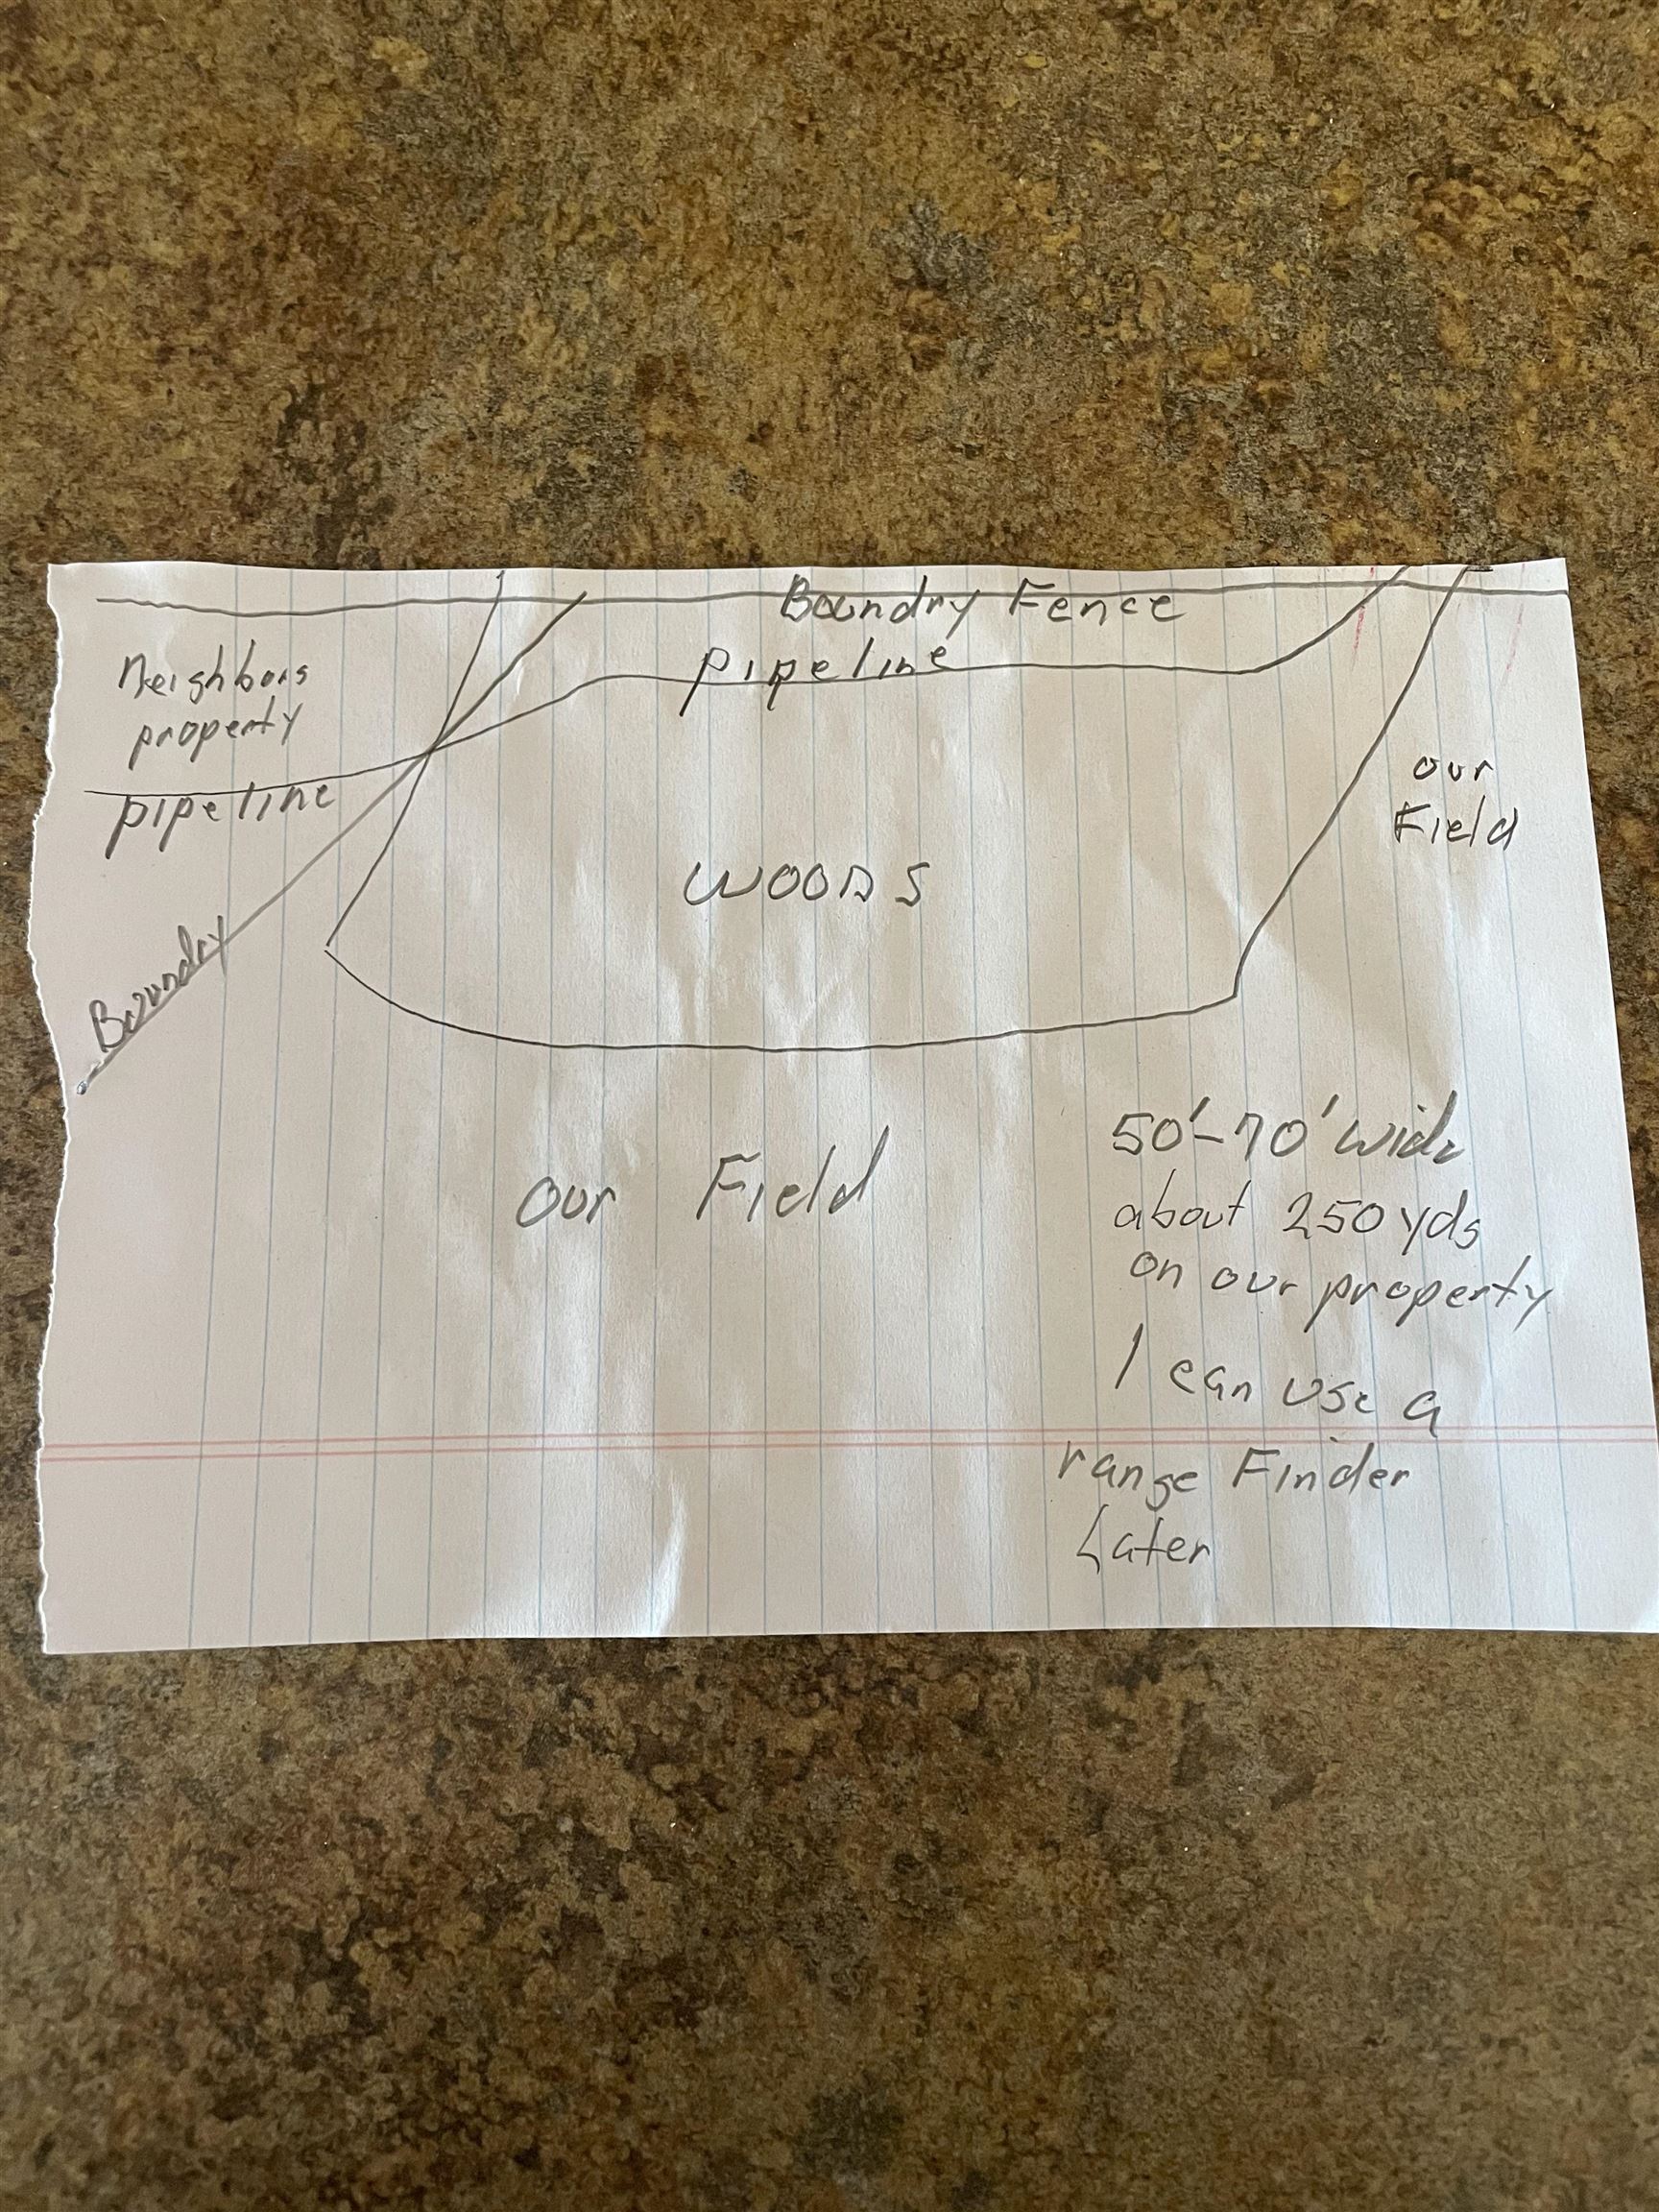 Boundry Fence
pipeline
Neighbors
property
pipeline
our
Field
WOODS
Boundry
our Field
50'-70' wide
about 250 yds
on our property
I can use a
range Finder
Later